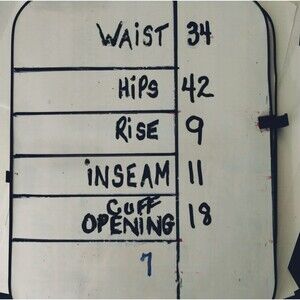 WAIST 34
HiPS 42
RiSE 9
iNSEAM 11
CUFF
OPENING 18
7